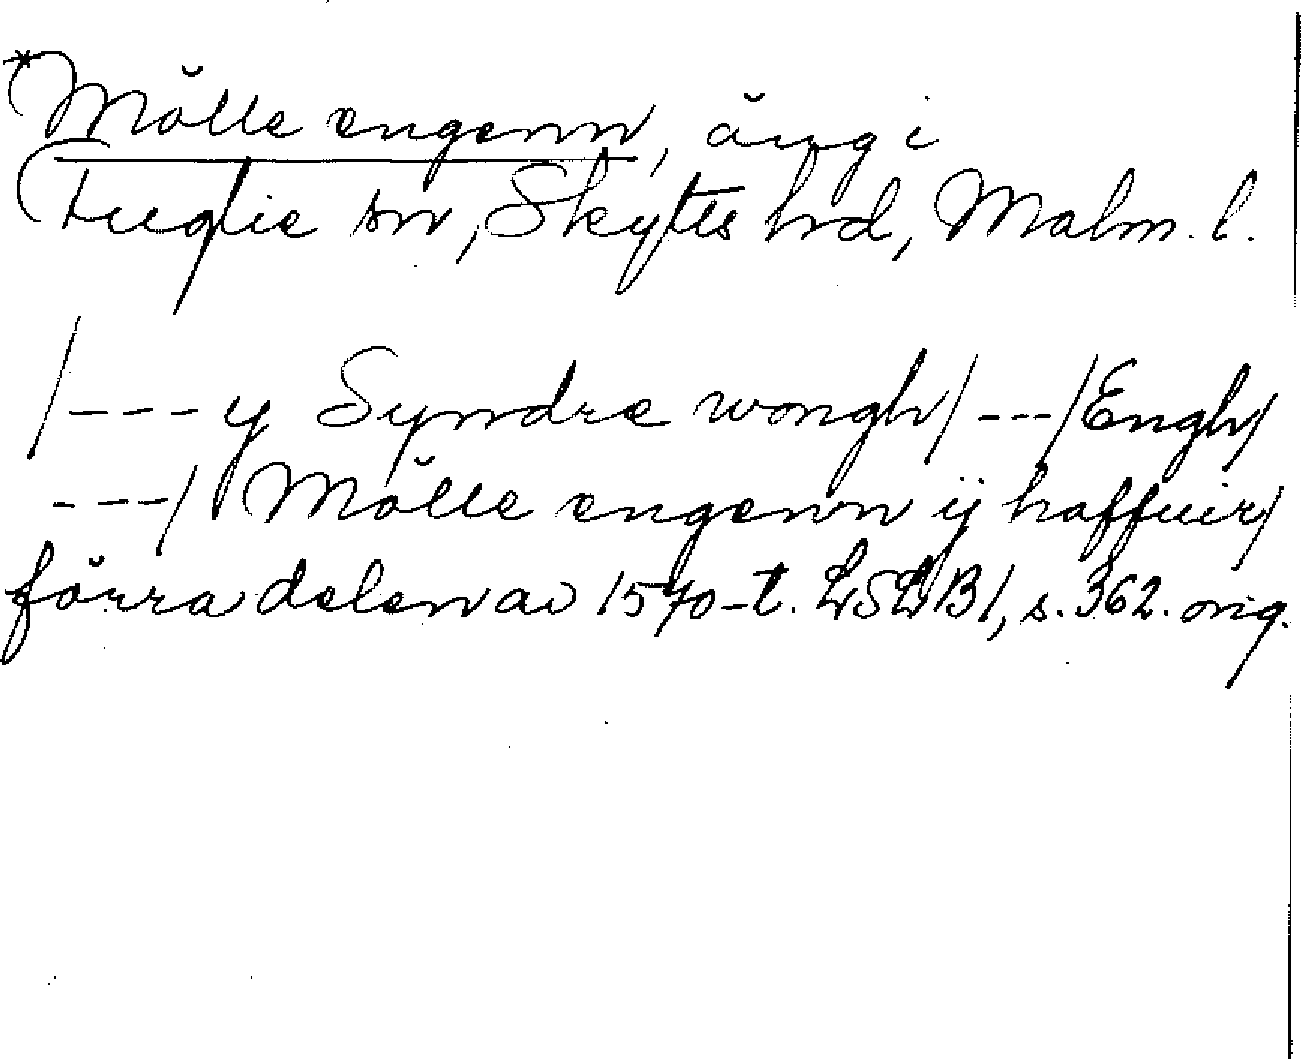 *Mölle engenn, äng i
Fuglie sn, Skytts hrd, Malm. l.
/--- y Syndre wongh/ ---/Engh/
---/ Mölle engenn ij haffuir/
förra delen av 1570-t. LSLB1, s. 362. orig.